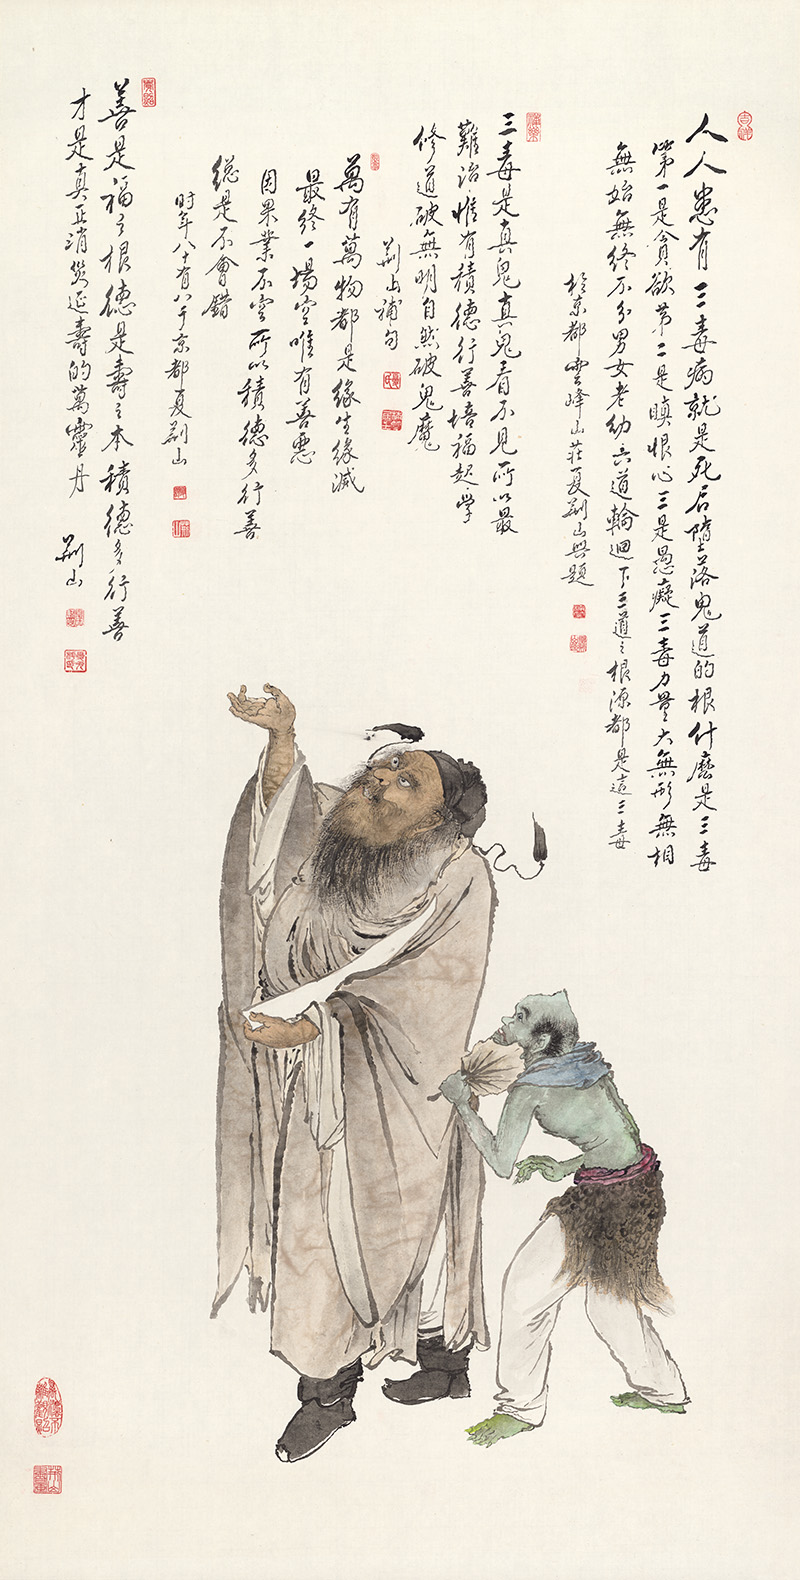 人人患有三毒病就是死后墮落鬼道的根什麽是三毒
第一是貪欲第二是瞋恨心三是愚癡三毒力量大無形無相
無始無終不分男女老幼六道輪迴下三道之根源都是這三毒
於京都雲峰山莊夏荆山與題
三毒是真鬼真鬼看不見所以最
難治惟有積德行善培福起學
修道破無明自然破鬼魔
荆山補句
萬有萬物都是緣生緣滅
最終一場空唯有善惡
因果業不空所以積德多行善
總是不會錯
时年八十有八于京都夏荆山
善是福之根德是壽之本積德多行善
才是真正消災延壽的萬靈丹
荆山